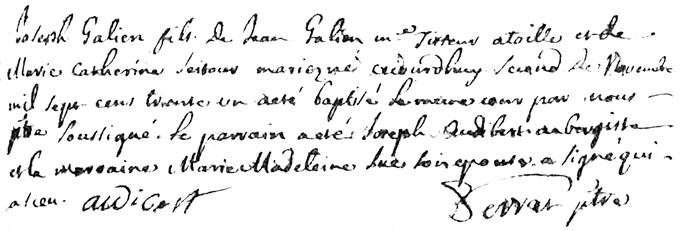 Joseph Galien fils de Jean Galien me Tisseur atoille et de
Marie Catherine Seitour mariez né cejourdhuy second de Novembre
mil sept cens trente un a eté baptisé le meme jour par nous
ptre soussigné. le parrain a eté Joseph Audibert aubergiste
et la marraine Marie Madeleine son epouse a signé qui
a sceu. audibert
ptre